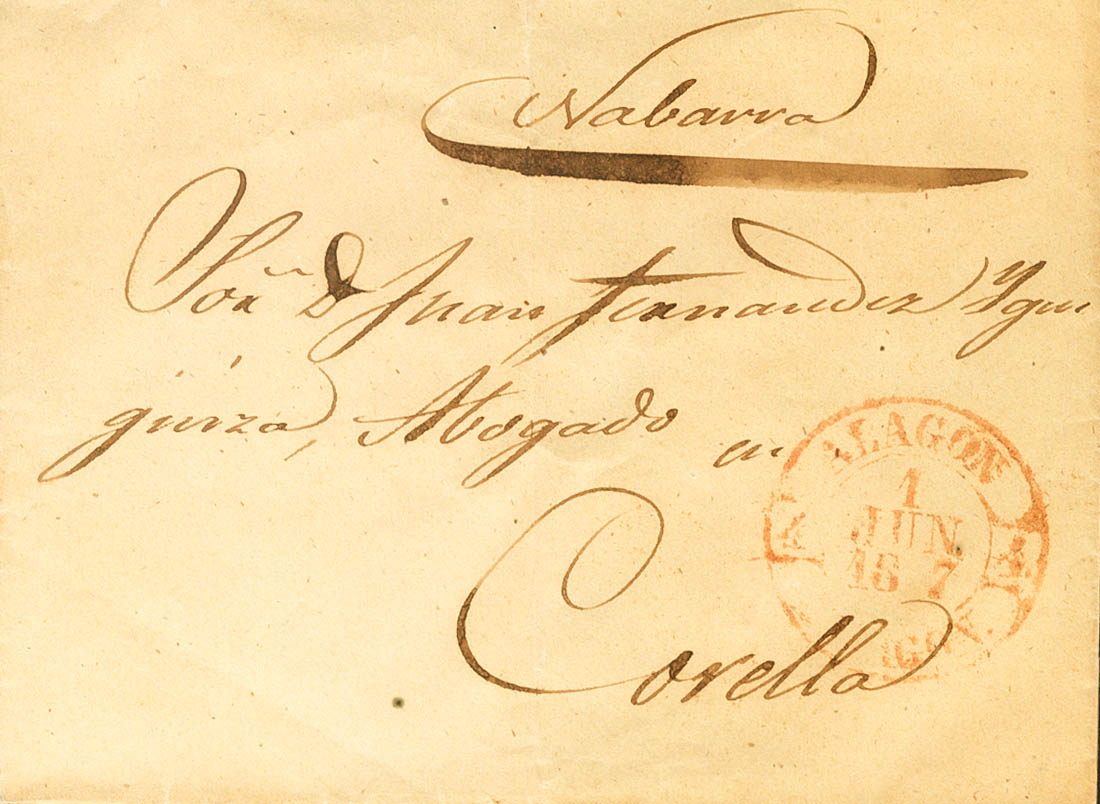 Nabarra
Sor. D. Juan Fernandez Ygui
guiza, Abogado en
Corella
ALAGON
1
JUN
18 7